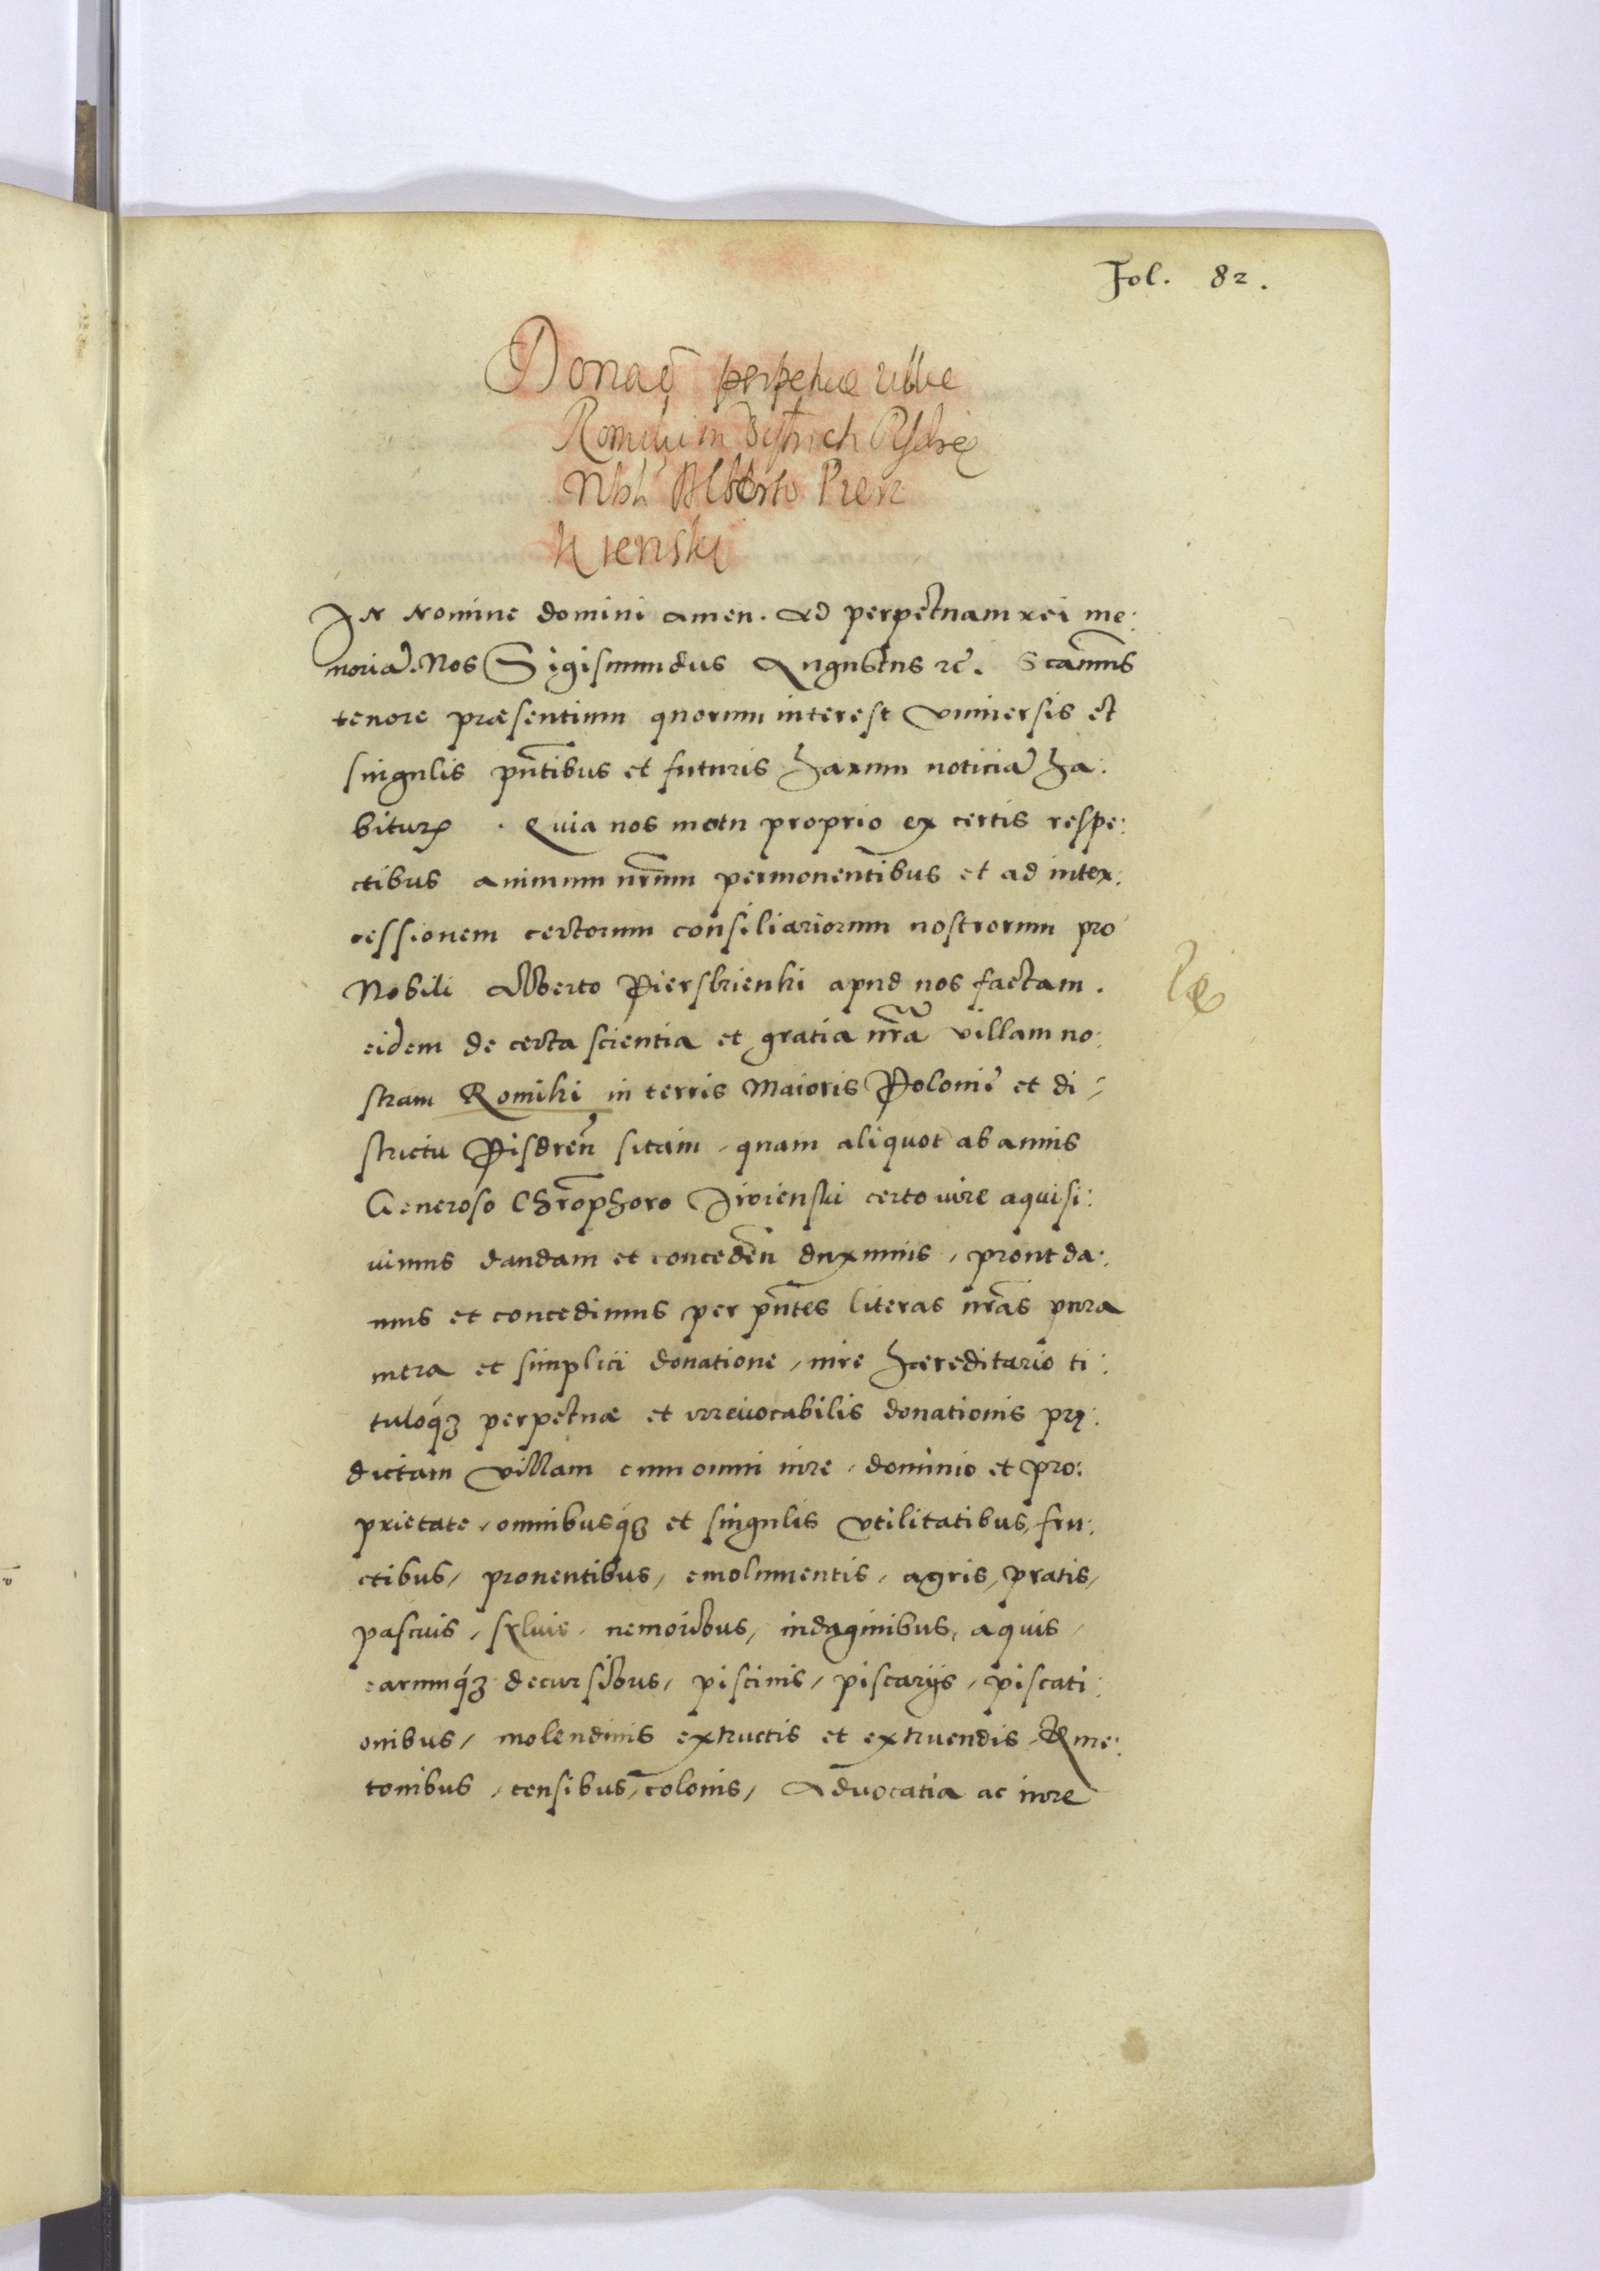 Fol. 82.
Donaõ perpetuæ villæ
Romiki in Districh Pysdreñ
Nbli Alberto Piers
kienski
In nomine domini amen. Ad perpetuam rei me:
moriã. Nos Sigismundus Augustus rc̃. Scãmus
tenore præsentium quorum interest vniuersis et
singulis pñtibus et futuris harum noticiã ha:
bituris. Quia nos motu proprio ex certis respe:
ctibus animum nr̃um permonentibus et ad inter:
cessionem certorum consiliariorum nostrorum pro
Nobili Alberto Pierskienki apud nos factam.
eidem de certa scientia et gratia nr̃a villam no:
stram Romiki in terris Maioris Poloniẽ et di:
strictu Pisdreñ sitam, quam aliquot ab annis
Generoso Chr̃ophoro Iwienski certo iure aquisi:
uimus dandam et conceden̄ duximus, prout da:
mus et concedimus per pñtes literas nr̃as pura
mera et simplici donatione, iure hæreditario ti:
tuloq́ʒ perpetuæ et irreuocabilis donationis prę:
dictam villam cum omni iure, dominio et pro:
prietate, omnibusq́ʒ et singulis vtilitatibus, fru:
ctibus, prouentibus, emolumentis, agris, pratis,
pascuis, sylvis, nemoribus, indaginibus, aquis,
earumq́ʒ decursibus, piscinis, piscarijs, piscati:
onibus, molendinis extructis et extruendis, Kme:
tonibus, censibus, colonis, Aduocatia ac iure